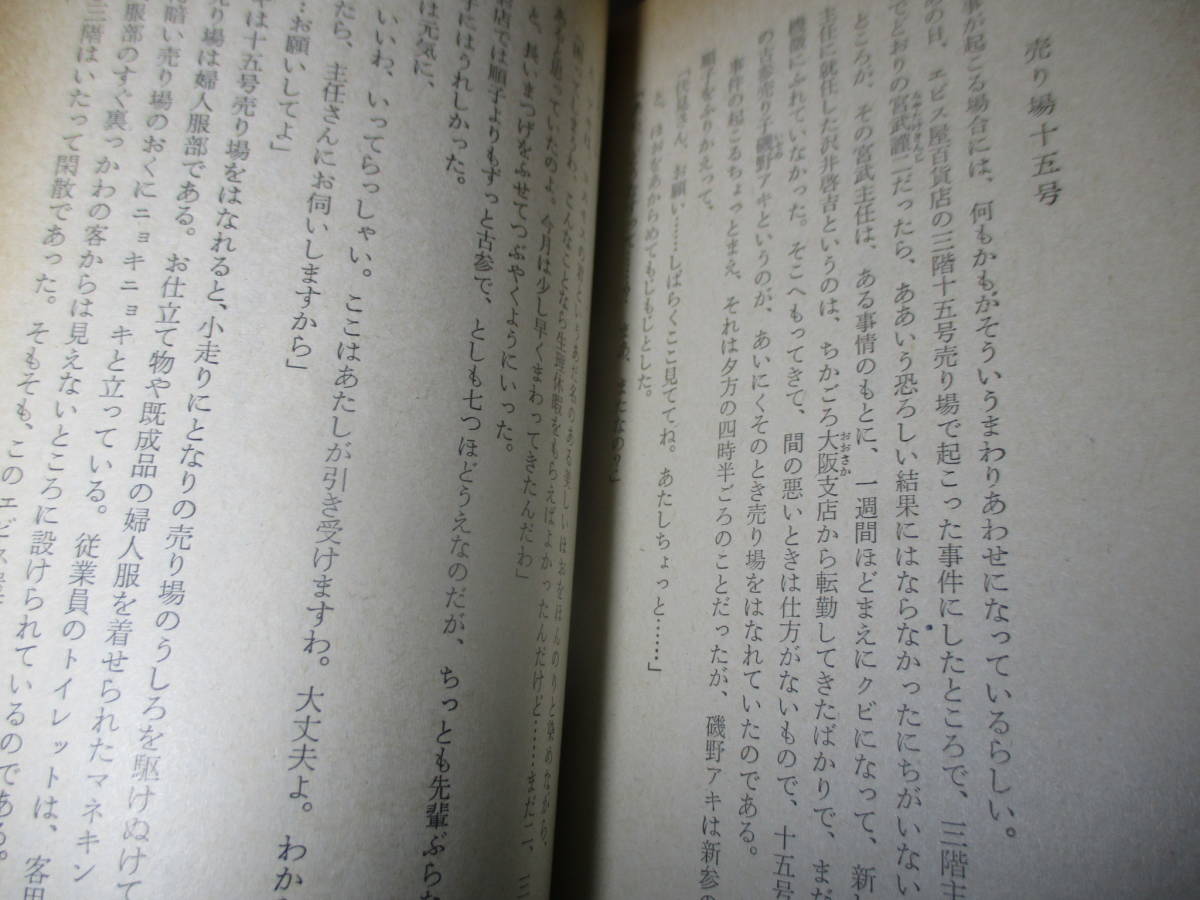 売り場十五号
事が起こる場合には、何もかもがそういうまわりあわせになっているらしい。
の日、エビス屋百貨店の三階十五号売り場で起こった事件にしたところで、三階主
でどおりの宮武謹二だったら、ああいう恐ろしい結果にはならなかったにちがいない
ところが、その宮武主任は、ある事情のもとに、一週間ほどまえにクビになって、新し
主任に就任した沢井啓吉というのは、ちかごろ大阪支店から転勤してきたばかりで、まだ
機微にふれていなかった。そこへもってきて、間の悪いときは仕方がないもので、十五号
の古参売り子磯野アキというのが、あいにくそのとき売り場をはなれていたのである。
事件の起こるちょっとまえ、それは夕方の四時半ごろのことだったが、磯野アキは新参の
順子をふりかえって、
「伏見さん、お願い……しばらくここ見ててね。あたしちょっと……」
と、ほおをあからめてもじもじとした。
またなの？」
というあだ名のある美しいほおをほんのりと染めながら、
こんなことなら生理休暇をもらえばよかったんだけど……まだ二、三
あると思っていたのよ。今月は少し早くまわってきたんだわ」
と、長いまつげをふせてつぶやくようにいった。
店では順子よりもずっと古参で、としも七つほどうえなのだが、ちっとも先輩ぶらな
子にはうれしかった。
は元気に、
いいわ、いってらっしゃい。ここはあたしが引き受けますわ。大丈夫よ。わか
たら、主任さんにお伺いしますから」
…お願いしてよ」
は十五号売り場をはなれると、小走りにとなりの売り場のうしろを駆けぬけて
売り場は婦人服部である。お仕立て物や既成品の婦人服を着せられたマネキン
暗い売り場のおくにニョキニョキと立っている。従業員のトイレットは、客用
服部のすぐ裏っかわの客からは見えないところに設けられているのである。
三階はいたって閑散であった。そもそも、このエビス屋